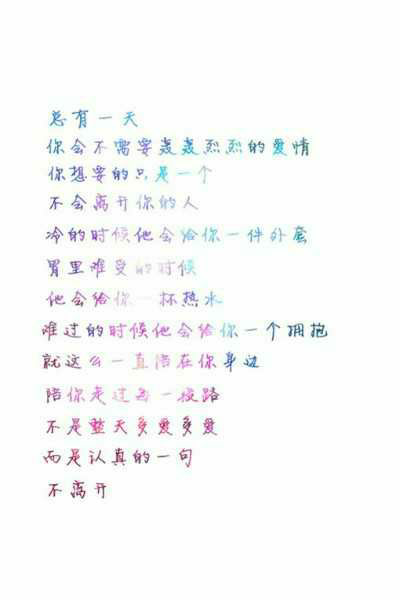 总有一天
你会不需要轰轰烈烈的爱情
你想要的只是一个
不会离开你的人
冷的时候他会给你一件外套
胃里难受的时候
他会给你一杯热水
难过的时候他会给你一个拥抱
就这么一直陪在你身边
陪你走过每一段路
不是整天多爱多爱
而是认真的一句
不离开